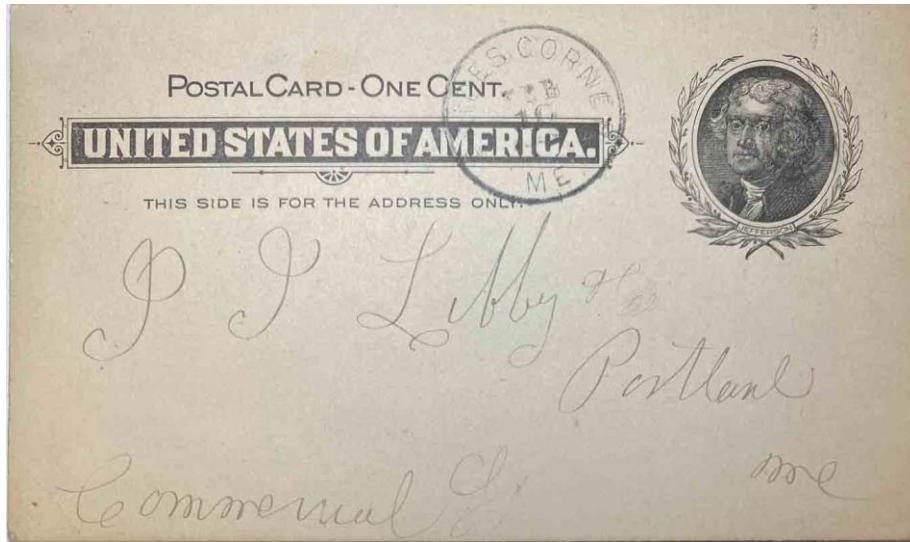 POSTAL CARD - ONE CENT.
UNITED STATES OF AMERICA.
THIS SIDE IS FOR THE ADDRESS ONLY.
ME
JEFFERSON
P J Libby
Portland
me
Commercial